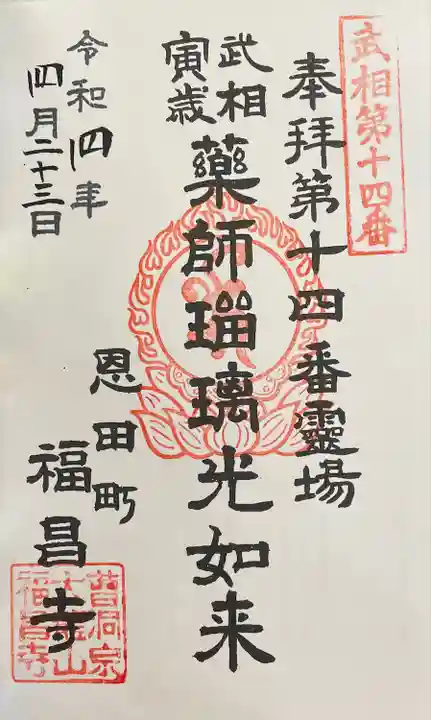 武相第十四番
奉拜第十四番靈場
武相
寅歳
藥師瑠璃光如来
恩田町
福昌寺
令和四年
四月二十三日
曹洞宗
福昌寺